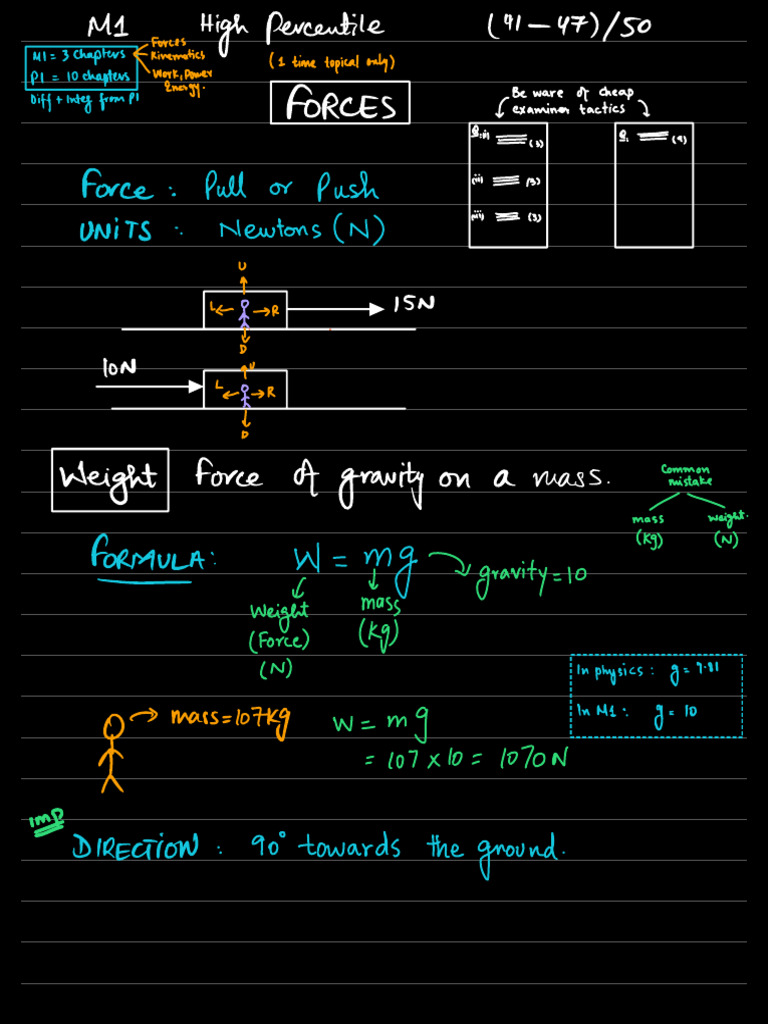 M1 High Percentile (41 – 47)/50
M1 = 3 chapters
P1 = 10 chapters
Diff + Integ from P1
Forces
Kinematics
Work, Power
Energy.
(1 time topical only)
FORCES
Be ware of cheap
examiner tactics
Q.(i) (3)
(ii) (3)
(iii) (3)
Q. (9)
Force : Pull or Push
UNITS : Newtons (N)
U
L R
D
15N
10N
U
L R
D
Weight force of gravity on a mass.
Common
mistake
mass
(Kg)
weight.
(N)
FORMULA: W = mg
gravity = 10
Weight
(Force)
(N)
mass
(Kg)
In physics : g = 9.81
In M1 : g = 10
mass = 107kg
W = mg
= 107 x 10 = 1070N
imp
DIRECTION : 90° towards the ground.